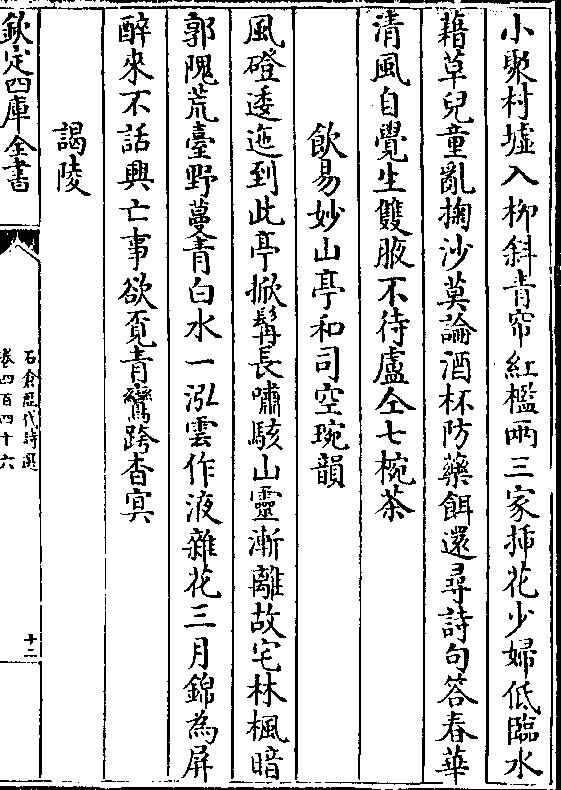 小聚村墟入柳斜青帘紅檻兩三家揷花少婦低臨水
藉草兒童亂掬沙莫論酒杯防藥餌還尋詩句答春華
清風自覺生雙腋不待盧仝七椀茶
飲易妙山亭和司空琬韻
風磴逶迤到此亭掀髯長嘯駭山靈漸離故宅林楓暗
郭隗荒臺野蔓青白水一泓雲作液雜花三月錦為屏
醉來不話興亡事欲覓青鸞跨杳冥
謁陵
欽定四庫全書
石倉歷代詩選
卷四百四十六
十二